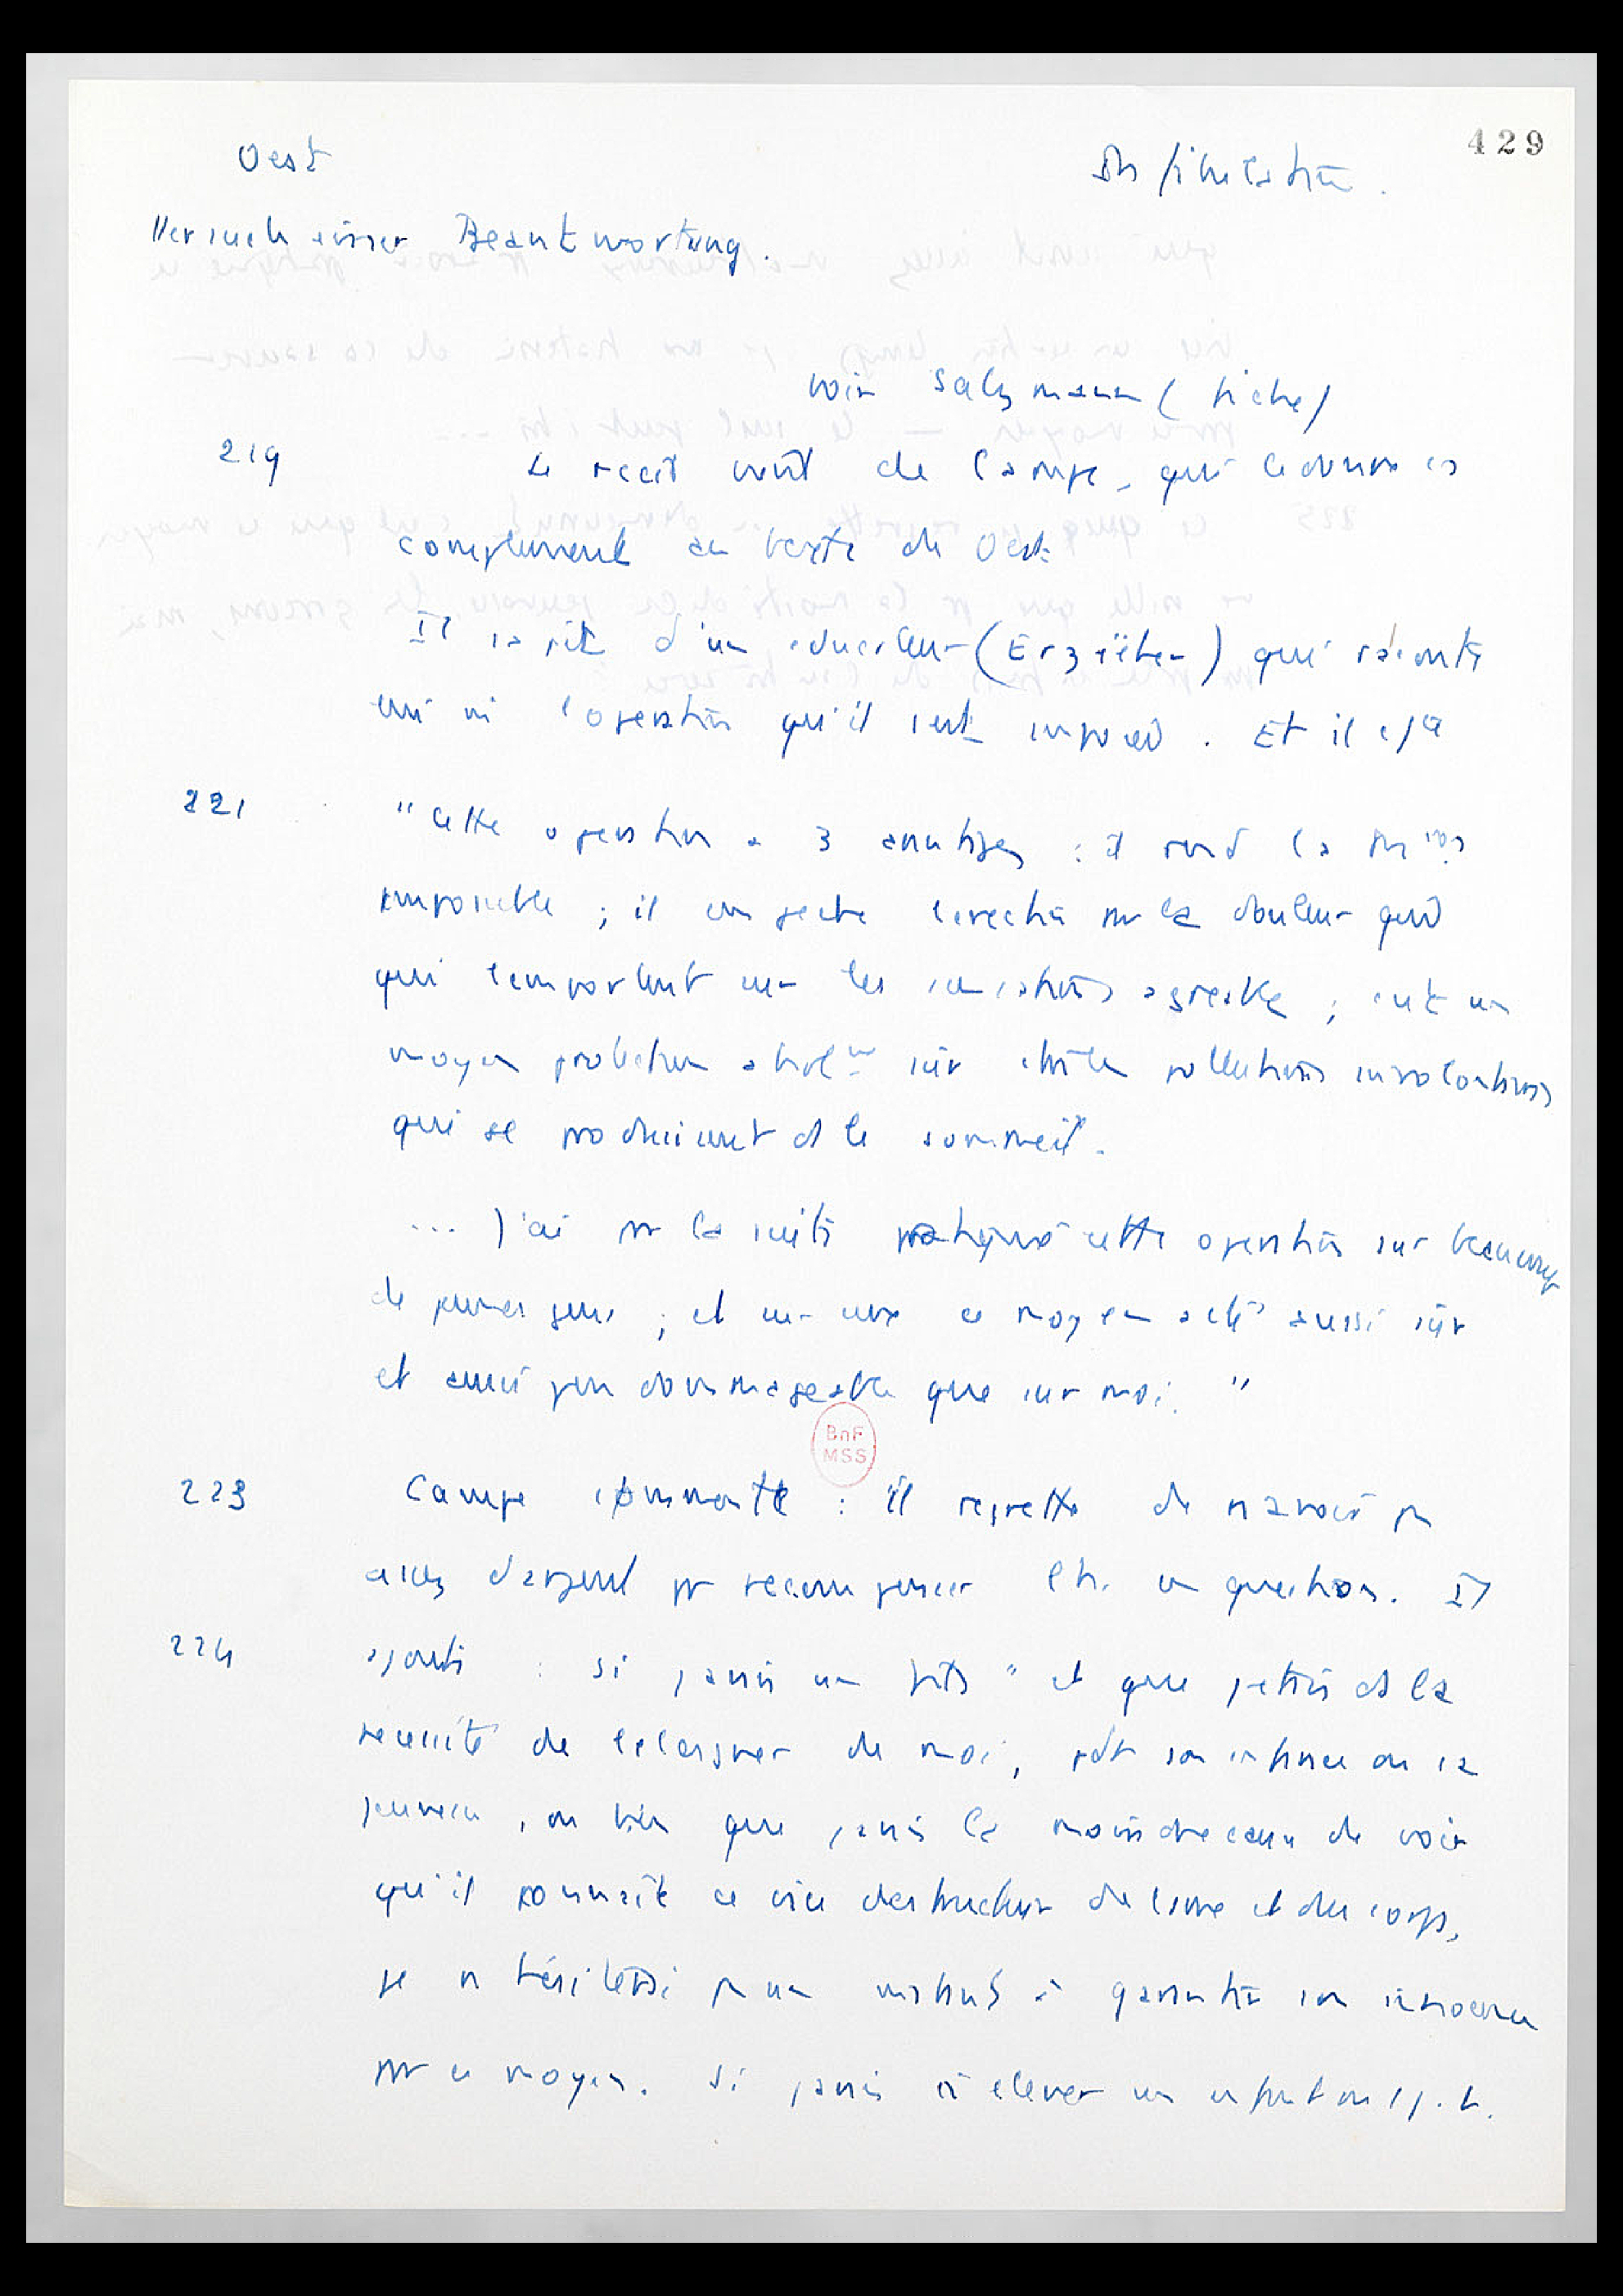 429
Oest
Infibulation.
Versuch einer Beantwortung.
voir Salzmann (fiche)
219
Le récit vient de Campe, qui le donne en
complement au texte de Oest
Il s'agit d'un educateur (Erzieher) qui raconte
ainsi l'operation qu'il s'est imposée. Et il
221
"Cette operation a 3 avantages : il rend la
impossible ; il empeche l'erection par la douleur
qui l'emportent sur les sensations agreables ; c'est un
moyen protecteur absolt sûr contre les pollutions involontaires
qui se produisent ds le sommeil.
... J'ai par la suite pratiqué cette operation sur beaucoup
de jeunes gens ; et sur eux ce moyen a été aussi sûr
et aussi peu dommageable que sur moi. "
BnF
MSS
223
Campe commente : il regrette de n'avoir pas
assez d'argent pr recompenser l'h. en question. Il
224
ajoute : si j'avais un fils " et que j'etais ds la
necessité de l'eloigner de moi, pdt son enfance ou sa
jeunesse, ou bien que j'avais la moindre cause de voir
qu'il connait ce vice destructeur de l'ame et du corps,
je n'hésiterai pas un instant à garantir son innocence
par ce moyen. Si j'avais à elever un enfant ou 1 j. h.